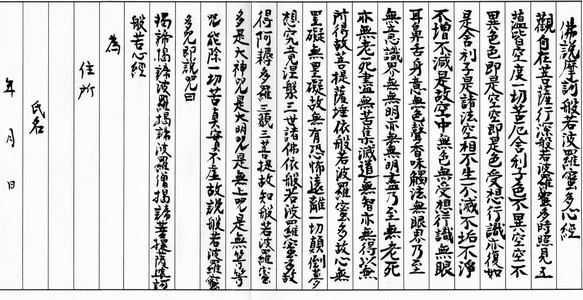 佛説摩訶般若波羅蜜多心經
觀自在菩薩行深般若波羅蜜多時照見五
蘊皆空度一切苦厄舎利子色不異空空不
異色色即是空空即是色受想行識亦復如
是舎利子是諸法空相不生不滅不垢不淨
不増不減是故空中無色無受想行識無眼
耳鼻舌身意無色聲香味觸法無眼界乃至
無意識界無無明亦無無明盡乃至無老死
亦無老死盡無苦集滅道無智亦無得以無
所得故菩提薩埵依般若波羅蜜多故心無
罣礙無罣礙故無有恐怖遠離一切顛倒夢
想究竟涅槃三世諸佛依般若波羅蜜多故
得阿耨多羅三藐三菩提故知般若波羅蜜
多是大神呪是大明呪是無上呪是無等等
呪能除一切苦真實不虚故説般若波羅蜜
多呪即説呪曰
揭諦揭諦波羅揭諦波羅僧揭諦菩提薩婆訶
般若心經
為
住所
氏名
年月日